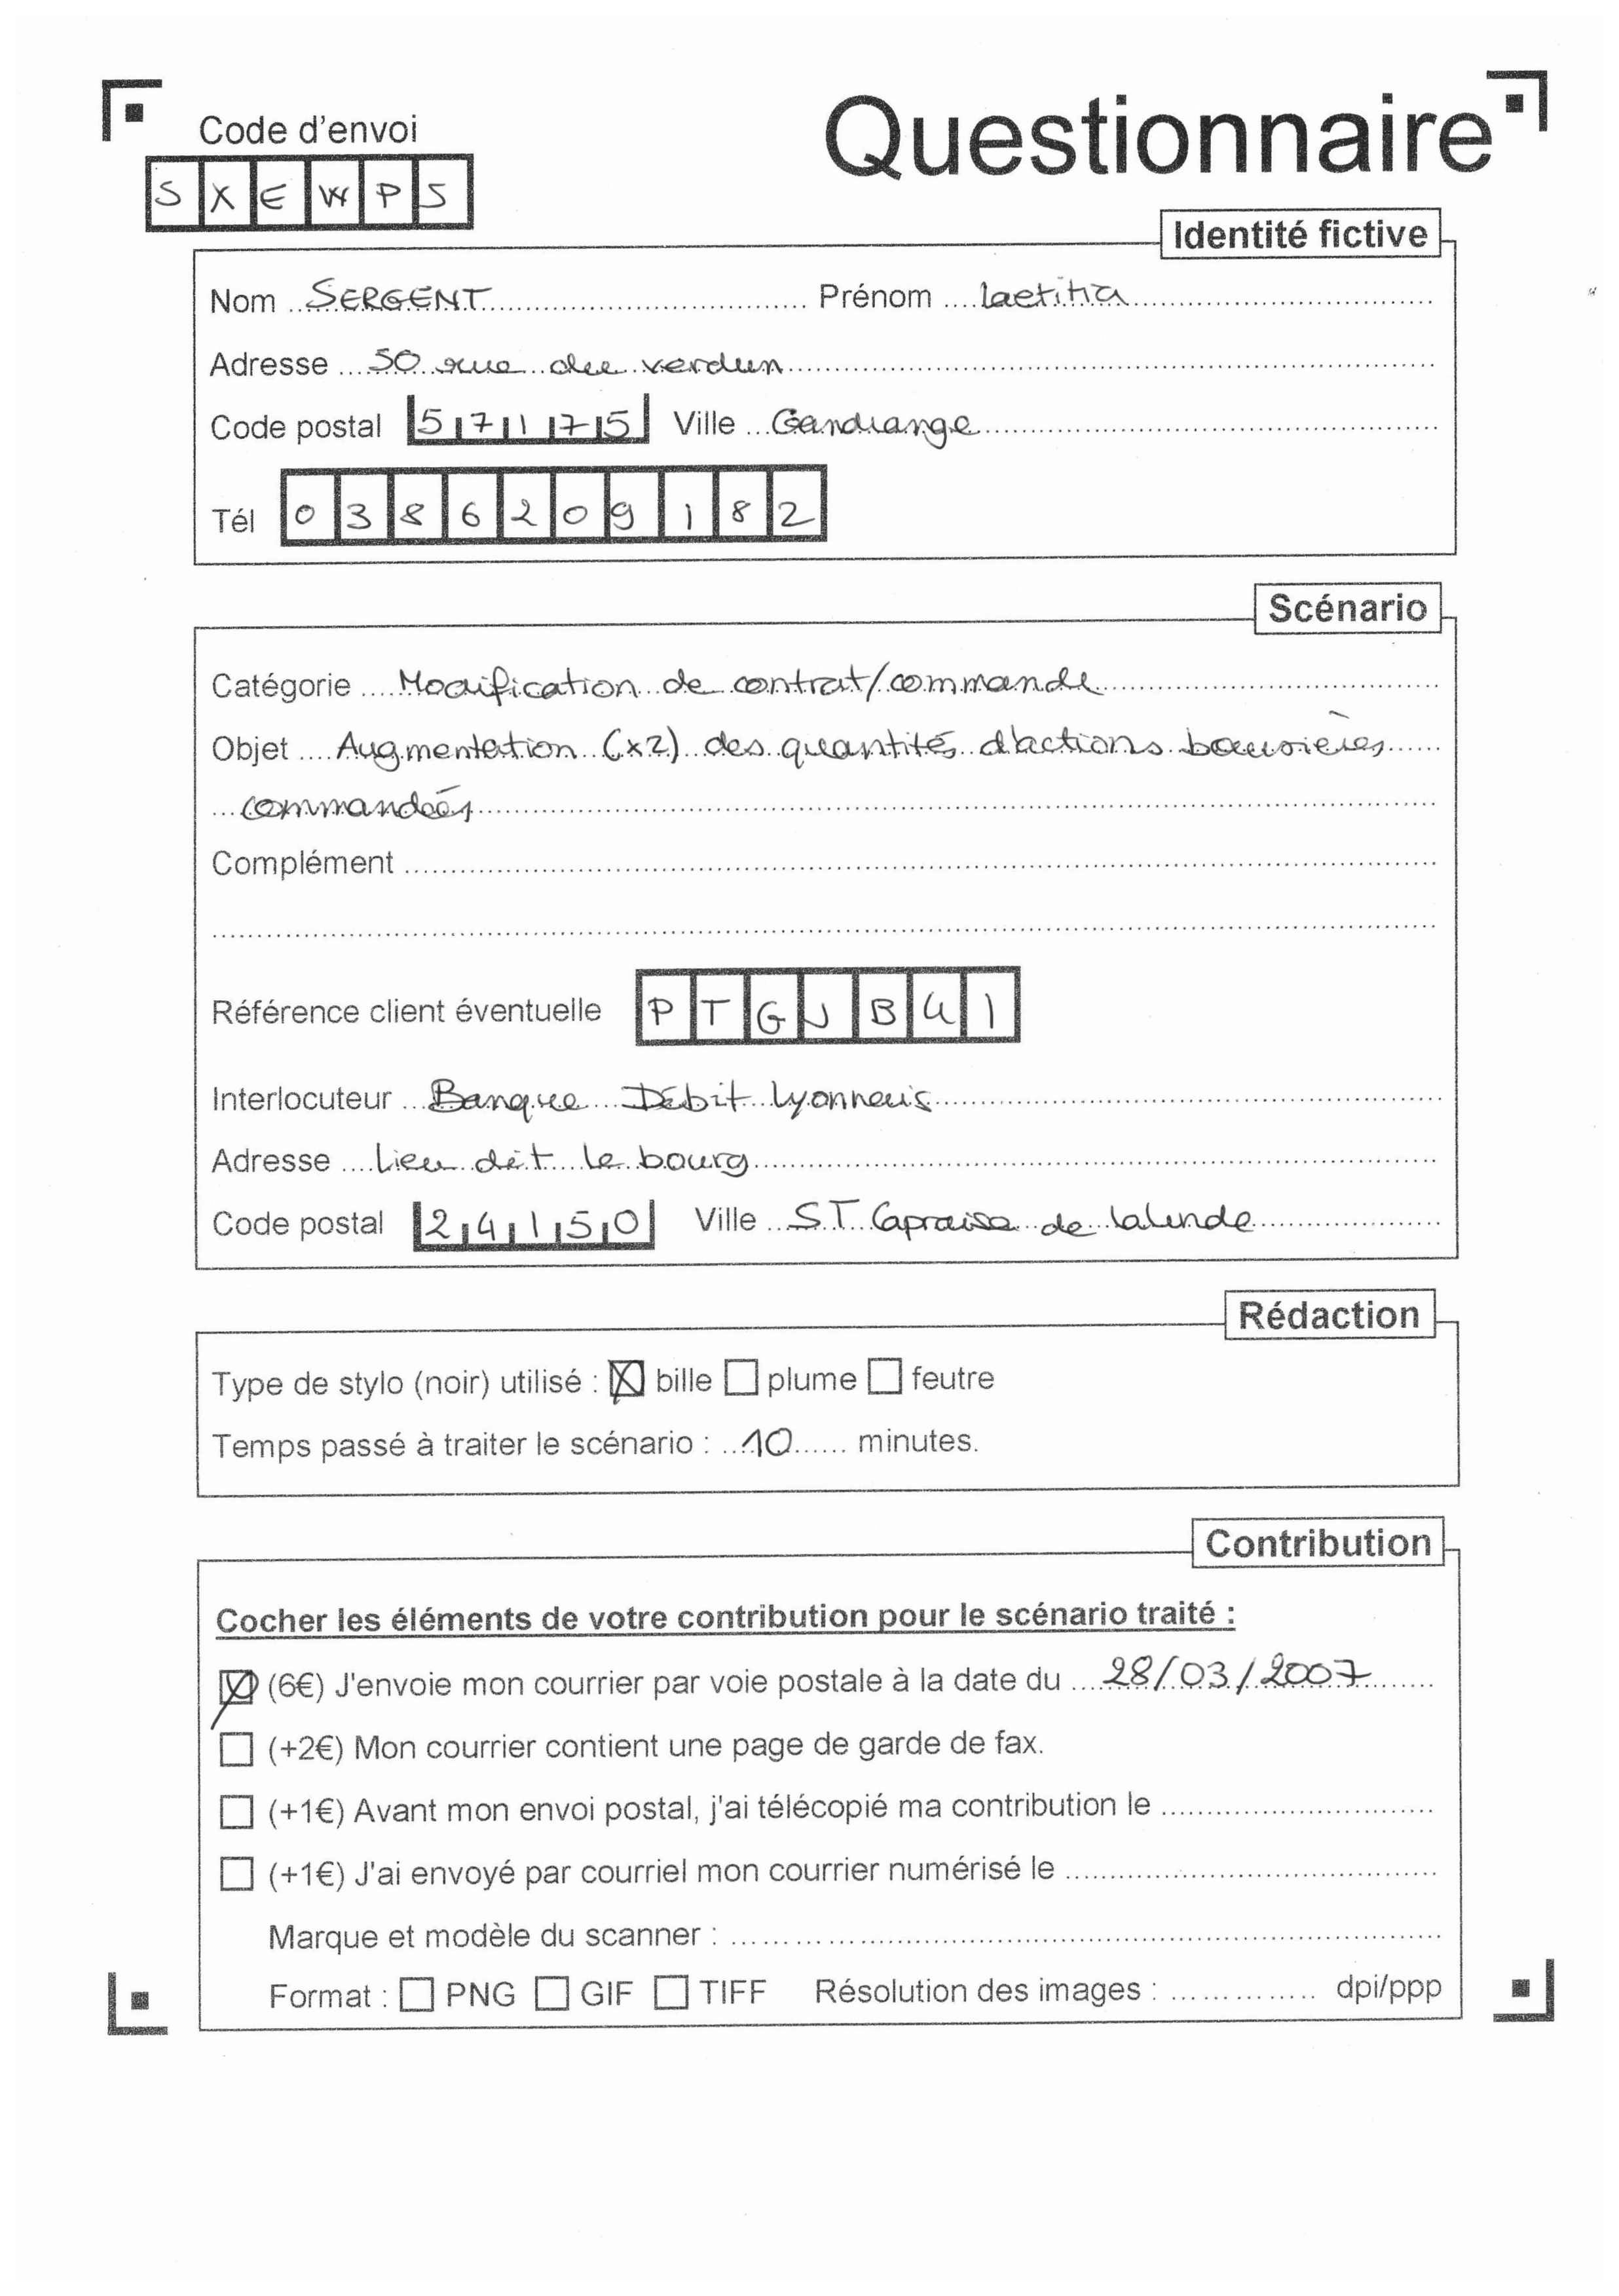 Code d'envoi
Questionnaire
S X E W P S
Identité fictive
Nom SERGENT Prénom laetitia
Adresse 50 rue du verdun
Code postal 57175 Ville Gandrange
Tél 0386209182
Scénario
Catégorie Modification de contrat/commande
Objet Augmentation (x2) des quantités d'actions boursières
commandées
Complément
Référence client éventuelle P T G J B U 1
Interlocuteur Banque Débit Lyonnais
Adresse Lieu dit le bourg
Code postal 24150 Ville ST Capraise de lalinde
Rédaction
Type de stylo (noir) utilisé : ☒ bille ☐ plume ☐ feutre
Temps passé à traiter le scénario : 10 minutes.
Contribution
Cocher les éléments de votre contribution pour le scénario traité :
☒ (6€) J'envoie mon courrier par voie postale à la date du 28/03/2007
☐ (+2€) Mon courrier contient une page de garde de fax.
☐ (+1€) Avant mon envoi postal, j'ai télécopié ma contribution le
☐ (+1€) J'ai envoyé par courriel mon courrier numérisé le
Marque et modèle du scanner :
Format : ☐ PNG ☐ GIF ☐ TIFF Résolution des images : dpi/ppp